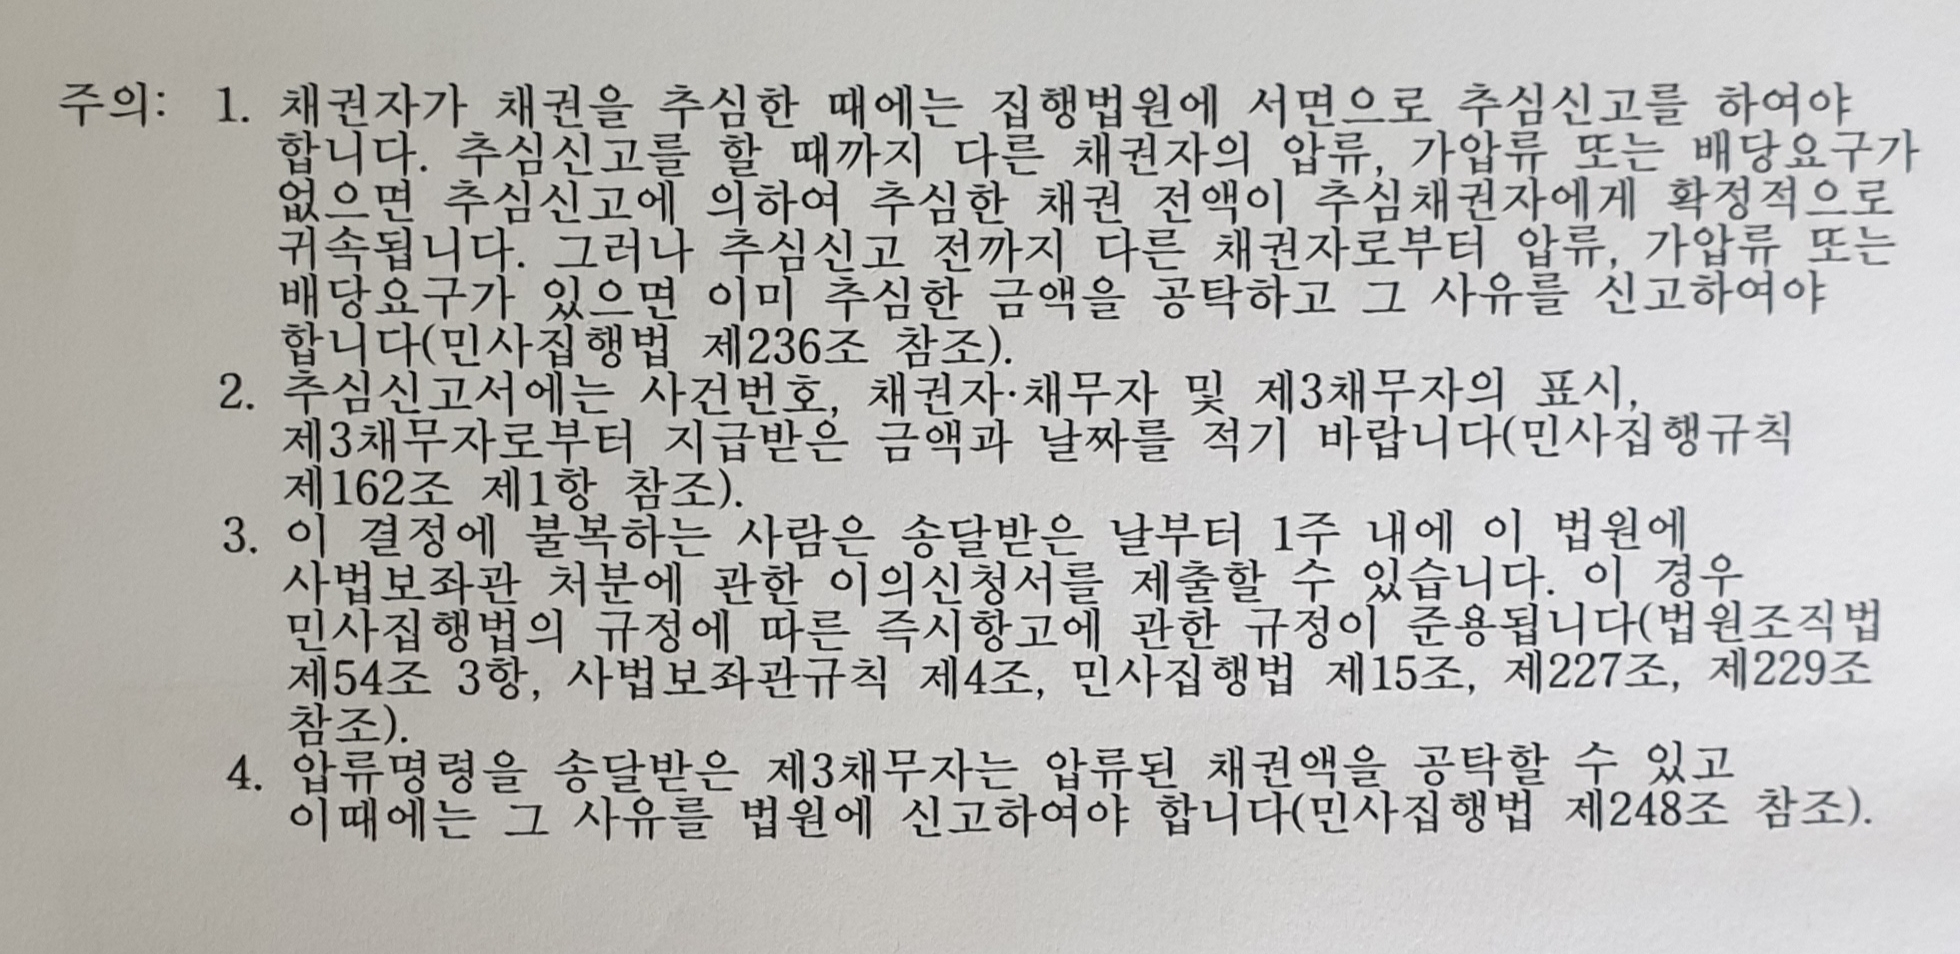 주의: 1. 채권자가 채권을 추심한 때에는 집행법원에 서면으로 추심신고를 하여야
합니다. 추심신고를 할 때까지 다른 채권자의 압류, 가압류 또는 배당요구가
없으면 추심신고에 의하여 추심한 채권 전액이 추심채권자에게 확정적으로
귀속됩니다. 그러나 추심신고 전까지 다른 채권자로부터 압류, 가압류 또는
배당요구가 있으면 이미 추심한 금액을 공탁하고 그 사유를 신고하여야
합니다(민사집행법 제236조 참조).
2. 추심신고서에는 사건번호, 채권자·채무자 및 제3채무자의 표시,
제3채무자로부터 지급받은 금액과 날짜를 적기 바랍니다(민사집행규칙
제162조 제1항 참조).
3. 이 결정에 불복하는 사람은 송달받은 날부터 1주 내에 이 법원에
사법보좌관 처분에 관한 이의신청서를 제출할 수 있습니다. 이 경우
민사집행법의 규정에 따른 즉시항고에 관한 규정이 준용됩니다(법원조직법
제54조 3항, 사법보좌관규칙 제4조, 민사집행법 제15조, 제227조, 제229조
참조).
4. 압류명령을 송달받은 제3채무자는 압류된 채권액을 공탁할 수 있고
이때에는 그 사유를 법원에 신고하여야 합니다(민사집행법 제248조 참조).